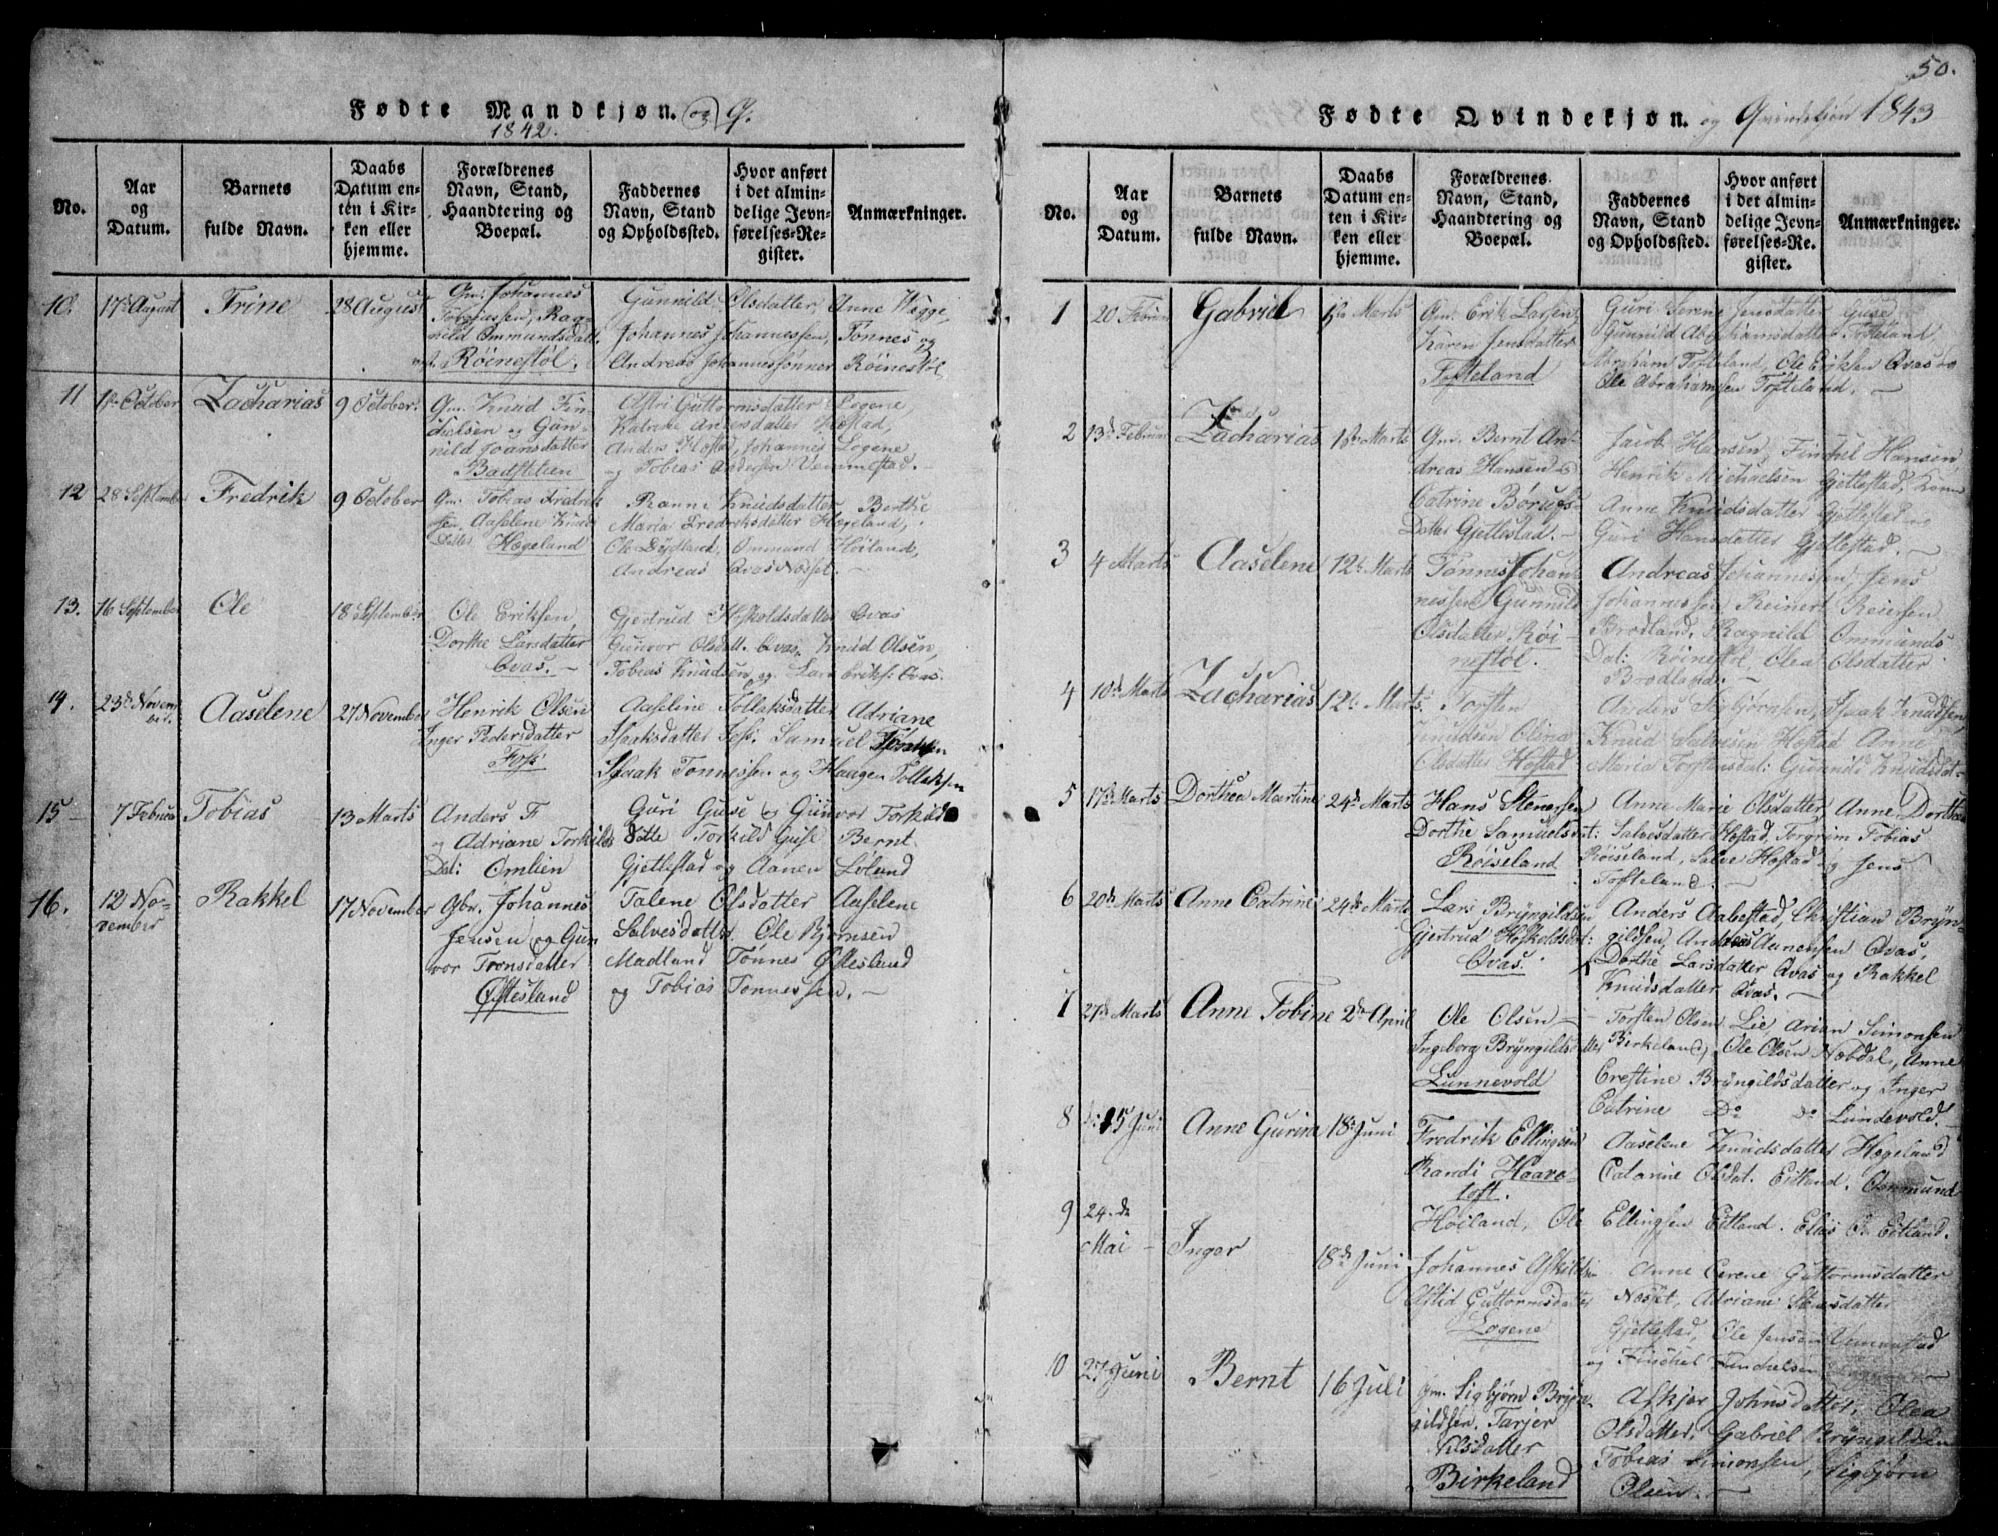 50.
Fødte Mandkjøn. og Q.
1842.
No.
Aar
og
Datum.
Barnets
fulde Navn.
Daabs
Datum en-
ten i Kir-
ken eller
hjemme.
Forældrenes
Navn, Stand,
Haandtering og
Boepæl.
Faddernes
Navn, Stand
og Opholdssted.
Hvor anført
i det almin-
delige Jevn-
førelses-Re-
gister.
Anmærkninger.
10. 17de August Trine 28 August
Gm. Johannes
Tobiassen, Rag-
nild Ommundsdatt.
Røinestøl.
Gunnild Olsdatter, Anne Wegge,
Johannes Johannessen, Tønnes og
Andreas Johannessønner Røinestøl
11 1ste October Zacharias 9 October.
Gm. Knud Fin-
chelsen og Gun-
nild Joansdatter
Badstelien
Astri Guttormsdatter Løgene
Katrine Andersdatter Hostad,
Anders Hostad, Johannes Løgene
og Tobias Andersen Vemmestad.
12 28 September Fredrik 9 October
Gm. Tobias Fredrik
sen, Aaselene Knuds
datter Hægeland
Ranni Knudsdatter, Berthe
Maria Fredriksdatter Hægeland,
Ole Dydland, Ommund Høiland,
Andreas Qvas Næset.
13. 16 September Ole 18 September
Ole Eriksen,
Dorthe Larsdatter
Qvas.
Gjertrud Høskoldsdatter Qvas
Gunvor Olsdatt. Qvas, Knud Olsen,
Tobias Knudsen og Lars Eriks: Qvas.
14. 23de Novem
ber. Aaselene 27 November
Henrik Olsen
Inger Pedersdatter
Foss.
Aaseline Tollaksdatter Adriane
Isaaksdatter Foss. Samuel
Isaak Tønnessen og Haagen Tollaksen
15 7 Februar Tobias 13 Marts
Anders F
og Adriane Torkilds
Dat: Omlien
Guri Guse og Gunvor Torkilds
datte Torkild Guse Bernt
Gjetlestad og Aanen Løland
16. 12 No-
vember Rakkel 17 November
Gbr. Johannes
Jensen og Gun
vor Tronsdatter
Øftesland
Talene Olsdatter Aaselene
Salvesdatter Ole Bjornsen
Madland Tønnes Øftesland
og Tobias Tønnessen.
Fødte Qvindekjøn. og Qvindekjøn 1843
No.
Aar
og
Datum.
Barnets
fulde Navn.
Daabs
Datum en-
ten i Kir-
ken eller
hjemme.
Forældrenes
Navn, Stand,
Haandtering og
Boepæl.
Faddernes
Navn, Stand
og Opholdssted.
Hvor anført
i det almin-
delige Jevn-
førelses-Re-
gister.
Anmærkninger.
1 20 Februar Gabriel Marts
Gm. Erik Larsen,
Karen Jensdatter
Tofteland
Guri Serene Jensdatter Guse
Gunnild Abrahamsdatter Tofteland,
Abraham Tofteland, Ole Eriksen Qvas og
Ole Abrahamsen Tofteland.
2 13de Februar Zacharias Marts
Gm. Bernt An-
dreas Hansen og
Catrine Børufs-
Datter Gjetlestad.
Jacob Hansen, Finchel Hansen,
Henrik Michaelsen Gjetlestad,
Anne Knudsdatter Gjetlestad og
Guri Hansdatter Gjetlestad.
3 4 Marts Aaselene 12te Marts
Tønnes Johan-
nessen Gunnild
Olsdatter Røi-
nestøl.
Andreas Johannessen, Jens
Johannessen Reinert Reiersen
Brodland, Ragnild Ommunds
Dat: Røinestøl, Olea Olsdatter
Brodland.
4 10de Marts Zacharias 12te Marts
Torsten
Knudsen Olina
Olsdatter Hostad
Anders Sigbjørnsen, Isaak Knudsen,
Knud Salvesen Hostad Anne
Maria Torstensdat: Gunnild Knudsdat-
5 17de Marts Dorthea Martine 24de Marts
Hans Stenersen
Dorthe Samuelsdat:
Røiseland
Anne Marie Olsdatter, Anne Dorthea
Salvesdatter Hostad, Torgrim Tobias
Røiseland, Salve Hostad og Jens
Tofteland.
6 20de Marts Anne Catrine 24de Marts
Lars Bryngildsen
Gjertrud Høskoldsdat:
Qvas.
Anders Aabestad, Christian Bryn-
gildsen, Andreas Aanensen Qvas,
Dorthe Larsdatter Qvas og Rakkel
Knudsdatter Qvas.
7 27de Marts Anne Tobine 2den April
Ole Olsen
Ingeborg Bryngildsdatter
Lunnevold
Torsten Olsen Lie, Arian Simonsen
Birkeland, Ole Olsen Nøbdal, Anne
Crestine Bryngildsdatter og Inger
Catrine Do do Lundevold.
8 15 Juni Anne Gurina 18de Juni
Fredrik Ellingsen
Randi Haave-
toft.
Aaselene Knudsdatter Hægeland
Catarine Olsdat. Eitland, Ommund
Høiland, Ole Ellingsen Eitland. Elias O. Eitland.
9 24.de
Mai Inger 18de Juni
Johannes Askildsen
Astid Guttormsdatter
Løgene
Anne Cerene Guttormsdatter
Næsset, Adriane Stenersdatter
Gjetlestad, Ole Jensen Vemmestad
og Finchel Finchelsen
10 27 Juni Bernt 16 Juli
Gm. Sigbjørn Bryn
gildsen. Tarjer
Nilsdatter
Birkeland
Askjer Johnsdatter, Olea
Olsdatter, Gabriel Bryngildsen
Tobias Simonsen, Sigbjørn
Olsen.